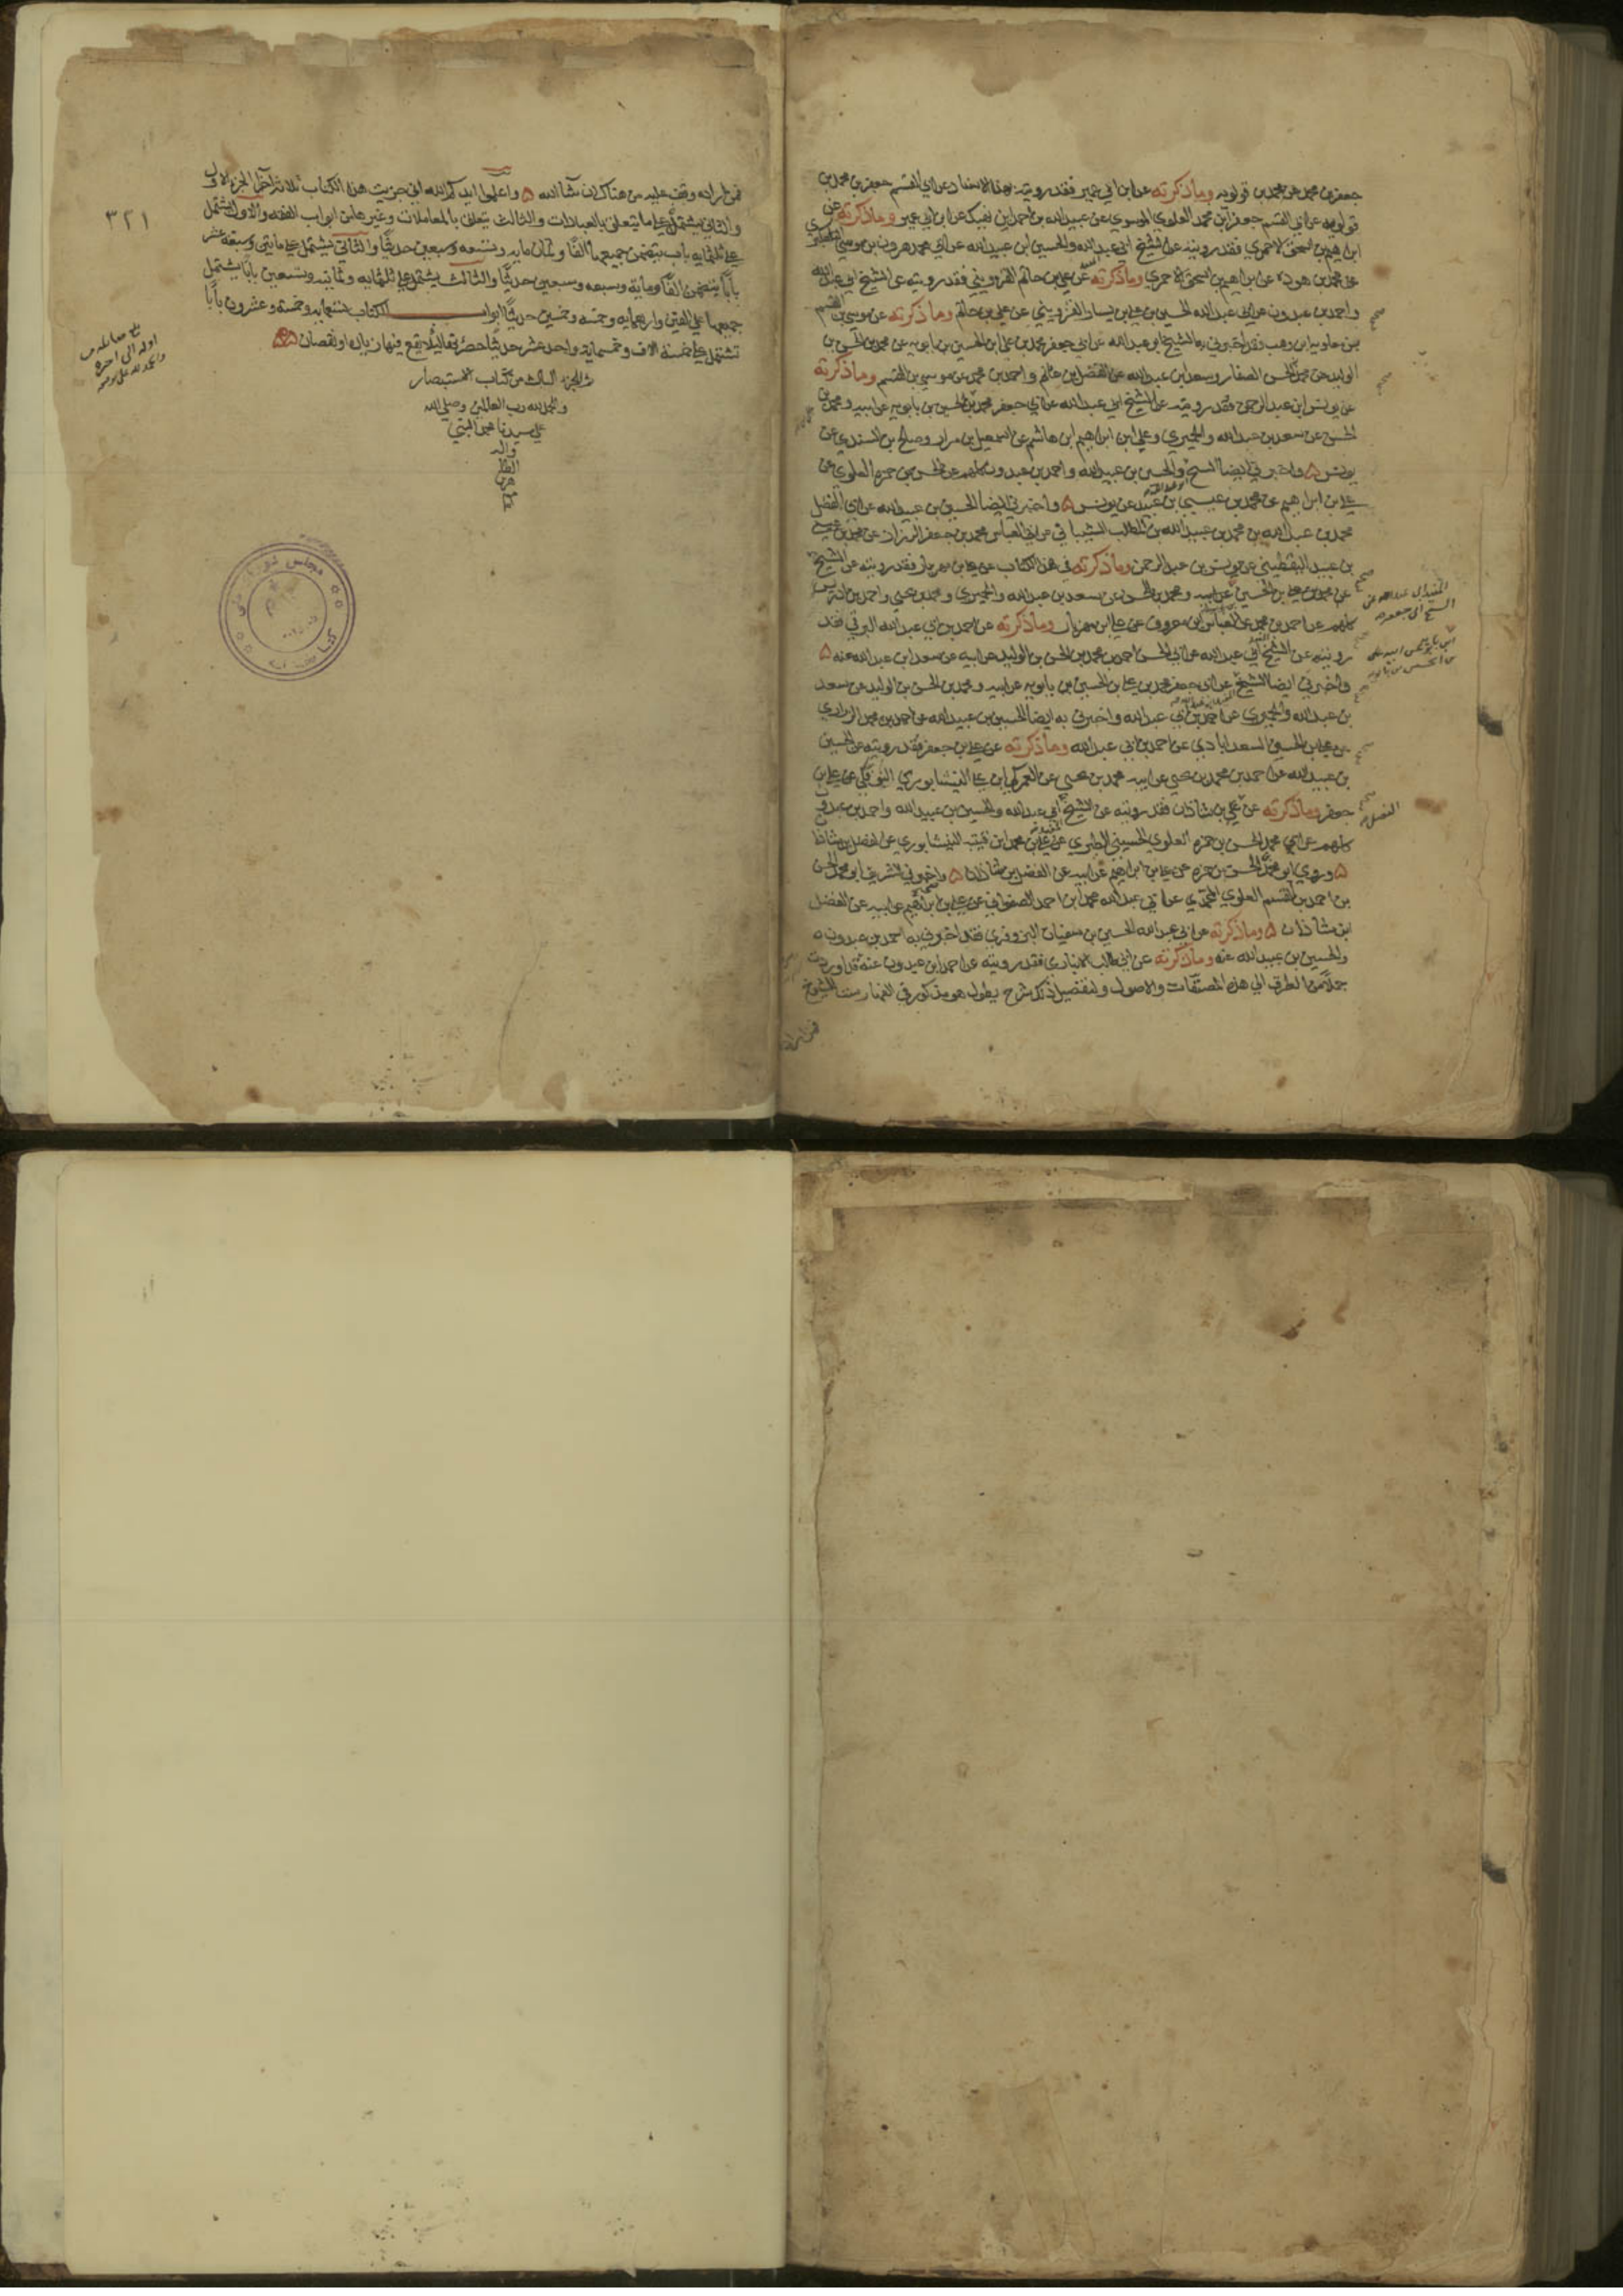 جعفر بن محمد عن محمد بن قولويه وما ذكرته عن ابن ابي عمير فقد رويته بهذا الاسناد عن ابي القسم جعفر بن محمد بن
قولويه عن ابي القسم جعفر بن محمد العلوي الموسوي عن عبيد الله بن احمد بن نهيك عن ابن ابي عمير وما ذكرته عن
ابراهيم بن اسحق الاحمري فقد رويته عن الشيخ ابي عبد الله والحسين ابن عبيد الله عن ابي محمد هرون بن موسى التلعكبري
عن محمد بن هوذه عن ابراهيم بن اسحق الاحمري وما ذكرته عن علي بن حاتم القزويني فقد رويته عن الشيخ ابي عبد الله
واحمد بن عبدون عن ابي عبد الله الحسين بن علي بن شيبان القزويني عن علي بن حاتم وما ذكرته عن موسى بن القسم
بن معاويه ابن وهب فقد اخبرني به الشيخ ابو عبد الله عن ابي جعفر محمد بن علي ابن الحسين بن بابويه عن محمد بن الحسن بن
الوليد عن محمد بن الحسن الصفار وسعد ابن عبد الله عن الفضل بن غانم واحمد بن محمد عن موسى بن القسم وما ذكرته
عن يونس ابن عبد الرحمن فقد رويته عن الشيخ ابي عبد الله عن ابي جعفر محمد بن علي بن الحسين بن بابويه عن ابيه ومحمد بن
الحسن عن سعد بن عبد الله والحميري وعلي ابن ابراهيم ابن هاشم عن اسمعيل بن مرار وصالح بن السندي عن
يونس ۵ واخبرني ايضا الشيخ والحسين بن عبيد الله واحمد بن عبدون كلهم عن الحسن بن حمزه العلوي عن
علي بن ابراهيم عن محمد بن عيسى بن عبيد عن يونس ۵ واخبرني ايضا الحسين بن عبيد الله عن ابي المفضل
محمد بن عبد الله بن محمد بن عبيد الله بن المطلب الشيباني عن ابي العباس محمد بن جعفر الرزاز عن محمد بن عيسى
بن عبيد اليقطيني عن يونس بن عبد الرحمن وما ذكرته في هذا الكتاب عن علي بن مهزيار فقد رويته عن الشيخ
عن محمد بن علي بن الحسين عن ابيه ومحمد بن الحسن عن سعد بن عبد الله والحميري ومحمد بن يحيى واحمد بن ادريس
كلهم عن احمد بن محمد عن العباس ابن معروف عن علي ابن مهزيار وما ذكرته عن احمد بن ابي عبد الله البرقي فقد
رويته عن الشيخ ابي عبد الله عن ابي الحسن احمد بن محمد بن الحسن بن الوليد عن ابيه عن سعد ابن عبد الله عنه ۵
واخبرني ايضا الشيخ عن ابي جعفر محمد بن علي بن الحسين بن بابويه عن ابيه ومحمد بن الحسن بن الوليد عن سعد
بن عبد الله والحميري عن احمد بن ابي عبد الله واخبرني به ايضا الحسين بن عبيد الله عن احمد بن محمد الزراري
عن علي بن الحسين السعدابادي عن احمد بن ابي عبد الله وما ذكرته عن علي بن جعفر فقد رويته عن الحسين
بن عبيد الله عن احمد بن محمد بن يحيى عن ابيه محمد بن يحيى عن العمركي ابن علي النيشابوري البوفكي عن علي بن
جعفر وما ذكرته عن بن شاذان فقد رويته عن الشيخ ابي عبد الله والحسين بن عبيد الله واحمد بن عبدون
كلهم عن ابي محمد الحسن بن حمزه العلوي الحسيني الطبري عن علي بن محمد ابن قتيبه النيشابوري عن الفضل بن شاذان
۵ وروى ابو محمد الحسن بن حمزه عن علي بن ابراهيم عن ابيه عن الفضل بن شاذان ۵ واخبرني الشريف ابو محمد الحسن
بن احمد بن القسم العلوي المحمدي عن ابي عبد الله محمد ابن احمد الصفواني عن علي بن ابراهيم عن ابيه عن الفضل
ابن شاذان ۵ وما ذكرته عن ابي عبد الله الحسين بن سفيان البزوفري فقد اخبرني به احمد بن عبدون
والحسين بن عبيد الله عنه وما ذكرته عن ابي طالب الانباري فقد رويته عن احمد ابن عبدون عنه قد اوردت
جملا من الطرق الى هذه المصنفات والاصول ولتفصيل ذلك شرح يطول هو مذكور في الفهارست للشيوخ
فمن اراد
صح
الفضل
فمن اراده وقف عليه من هناك ان شآ الله ۵ واعلموا ايدكم الله اني جزيت هذا الكتاب ثلاثة اجزا الجزء الاول
والثاني يشتمل على ما يتعلق بالعبادات والثالث يتعلق بالمعاملات وغيرها من ابواب الفقه والاول يشتمل
على ثلثمايه باب يتضمن جميعها الفا وثمان مايه وتسعه وسبعين حديثا والثاني يشتمل على مايتين وسبعه عشر
بابا يتضمن الفا وماية وسبعه وسبعين حديثا والثالث يشتمل على ثلثمايه وثمانيه وتسعين بابا يشتمل
جميعها على الفين واربعمايه وخمسه وخمسين حديثا ابواب الكتاب تسعمايه وخمسة وعشرون بابا
تشتمل على خمسة الاف وخمسماية واحد عشر حديثا حصرتها لئلا يقع فيها زياده او نقصان ۵۵
تم الجزء الثالث من كتاب الاستبصار
والحمد لله رب العالمين وصلى الله
على سيدنا محمد النبي
واله
الطا
هرين
٣٢١
اوله الى اخره
مجلس شوراى ملى